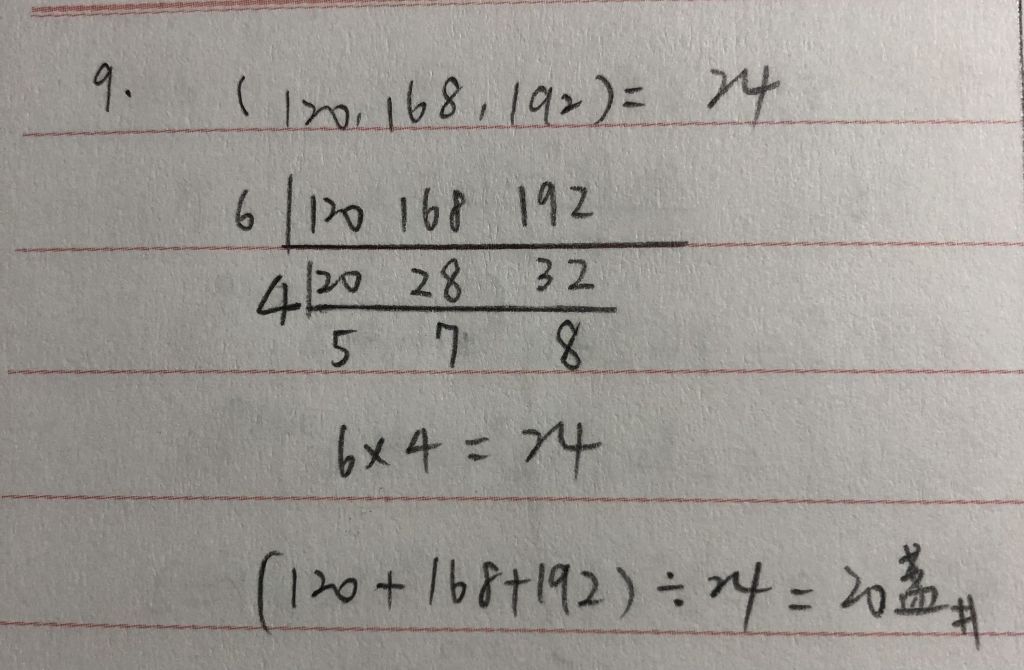 9. (120, 168, 192) = 24
6 120 168 192
4 20 28 32
5 7 8
6 × 4 = 24
(120 + 168 + 192) ÷ 24 = 20盏 #